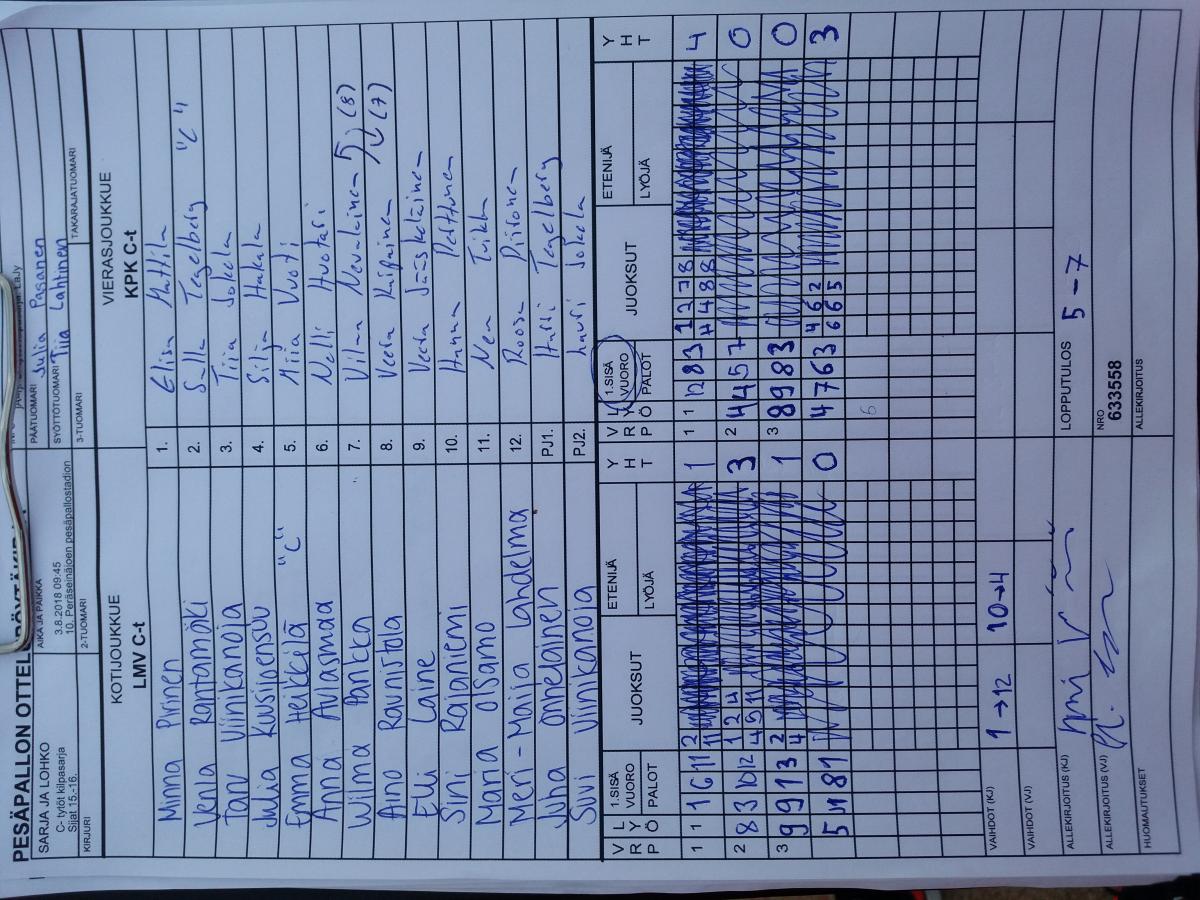 PESÄPALLON OTTELUPÖYTÄKIRJA
SARJA JA LOHKO
C- tytöt kilpasarja
Sijat 15.-16.
AIKA JA PAIKKA
3.8.2018 09:45
10. Peräseinäjoen pesäpallostadion
PÄÄTUOMARI Julia Pasanen
SYÖTTÖTUOMARI Tiia Lahtinen
KIRJURI
2-TUOMARI
3-TUOMARI
TAKARAJATUOMARI
KOTIJOUKKUE
LMV C-t
VIERASJOUKKUE
KPK C-t
Minna Pirinen 1. Elisa Mattila
Venla Rantamäki 2. Salla Tegelberg "C"
Taru Viinikanoja 3. Tiia Jokela
Julia Kuusijensuu 4. Silja Hakala
Emma Heikkilä "C" 5. Miia Vuoti
Anna Avlasmaa 6. Nelli Huotari
Wilma Pankka 7. Vilma Nevalainen (8)
Aino Raunistola 8. Veera Kuipuinen (7)
Elli Laine 9. Veera Jääskeläinen
Sini Rajaniemi 10. Hanna Perttunen
Maria Olsamo 11. Nea Tuikka
Meri-Maija Lahdelma 12. Roosa Piironen
Juha Onnelainen PJ1. Harri Tegelberg
Suvi Viinikanoja PJ2. Lauri Jokela
V R P L Y Ö 1.SISÄ VUORO PALOT JUOKSUT ETENIJÄ LYÖJÄ Y H T
V R P L Y Ö 1.SISÄ VUORO PALOT JUOKSUT ETENIJÄ LYÖJÄ Y H T
1 1 1 6 11 2 11 1
1 1 12 8 3 1 2 7 8 7 4 8 8 4
2 8 3 10 12 1 2 4 4 5 11 3
2 4 4 5 7 0
3 9 9 1 3 2 4 1
3 8 9 8 3 0
5 11 8 1 0
4 7 6 3 4 6 2 6 6 5 3
6
VAIHDOT (KJ) 1→12 10→4
VAIHDOT (VJ)
ALLEKIRJOITUS (KJ)
LOPPUTULOS 5-7
ALLEKIRJOITUS (VJ)
NRO
633558
HUOMAUTUKSET
ALLEKIRJOITUS